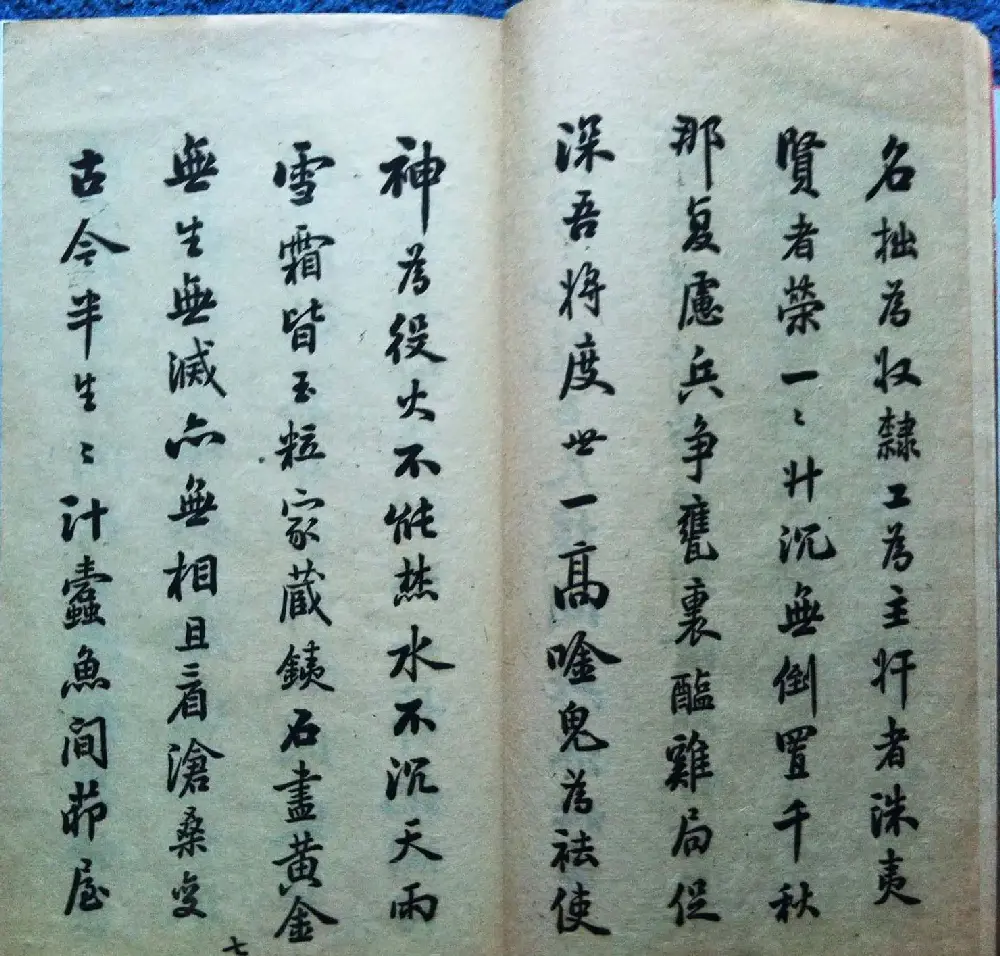 名拙為奴隸工為主奸者誅夷
賢者榮一〻升沉無倒置千秋
那复慮兵争甕裏醯雞局促
深吾將度世一高唫鬼為祛使
神為役火不能熱水不沉天雨
雪霜皆玉粒家藏鐵石盡黃金
無生無滅亦無相且看滄桑變
古今半生〻計蠹魚間茆屋
七